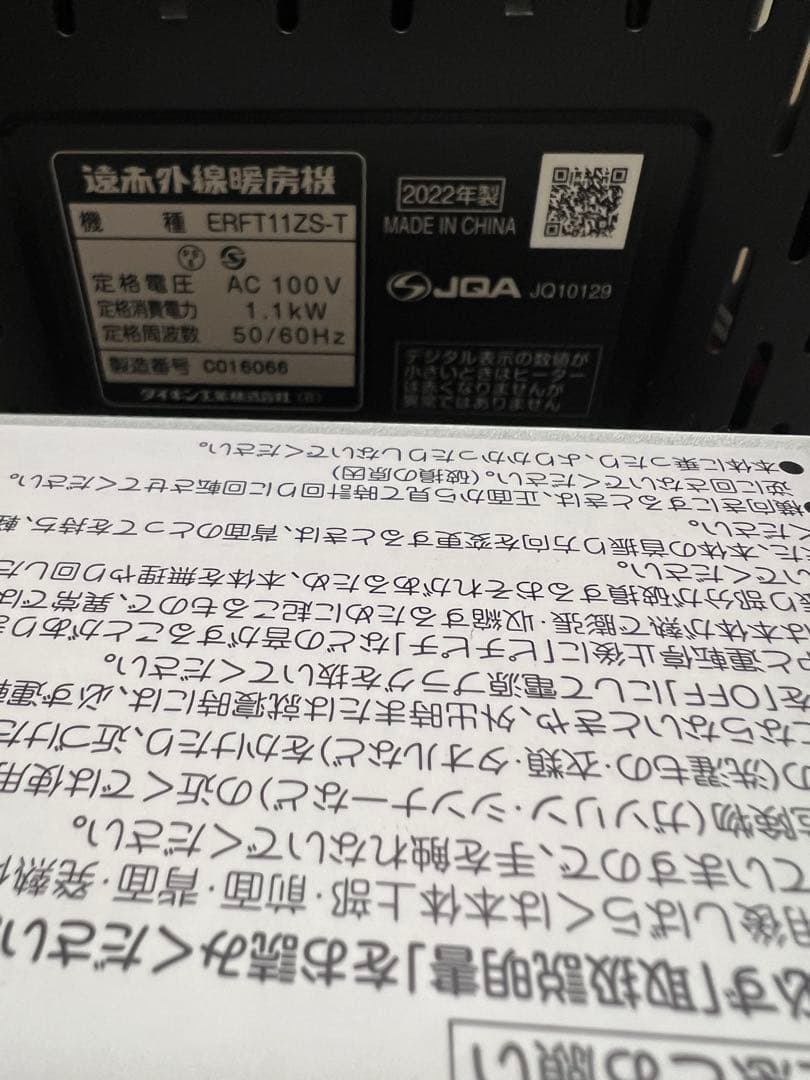 遠赤外線暖房機
機 種 ERFT11ZS-T
定格電圧 AC 100V
定格消費電力 1.1kW
定格周波数 50/60Hz
製造番号 C016066
ダイキン工業株式会社
2022年製
MADE IN CHINA
JQA JQ10129
デジタル表示の数値が
小さいときはヒーター
は赤くなりませんが
異常ではありません
必ず「取扱説明書」をお読みください
後しばらくは本体上部・前面・背面・発熱
ていますので、手を触れないでください。
険物(ガソリン・シンナーなど)の近くでは使用
の(洗濯もの・衣類・タオルなど)をかけたり、近づけた
ならないときや、外出時または就寝時には、必ず運転
を「OFF」にして電源プラグを抜いてください。
と運転停止後に「ピチピチ」などの音がすることがありま
は本体が熱で膨張・収縮するために起こるもので、異常では
り部分が破損するおそれがあるため、本体を無理やり回した
いでください。
た、本体の首振り方向を変更するときは、背面のとってを持ち、軽
ください。
●横向きにするときは、正面から見て時計回りに回転させてください。
逆に回さないでください。(破損の原因)
●本体に乗ったり、よりかかったりしないでください。